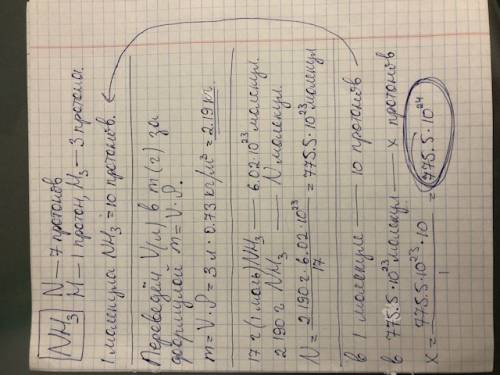 NH₃ N — 7 протонов
H — 1 протон, H₃ — 3 протона.
1 молекула NH₃ = 10 протонов.
Переводим V(л) в m (г) за
формулой m = V · ρ.
m = V · ρ = 3 л · 0.73 кг/м³ = 2.19 кг.
17 г (1 моль) NH₃ — 6.02 · 10²³ молекул.
2190 г NH₃ — N молекул.
N = 2190 г · 6.02 · 10²³ / 17 = 775.5 · 10²³ молекул
в 1 молекуле — 10 протонов
в 775.5 · 10²³ молекул — x протонов
x = 775.5 · 10²³ · 10 / 1 = 775.5 · 10²⁴